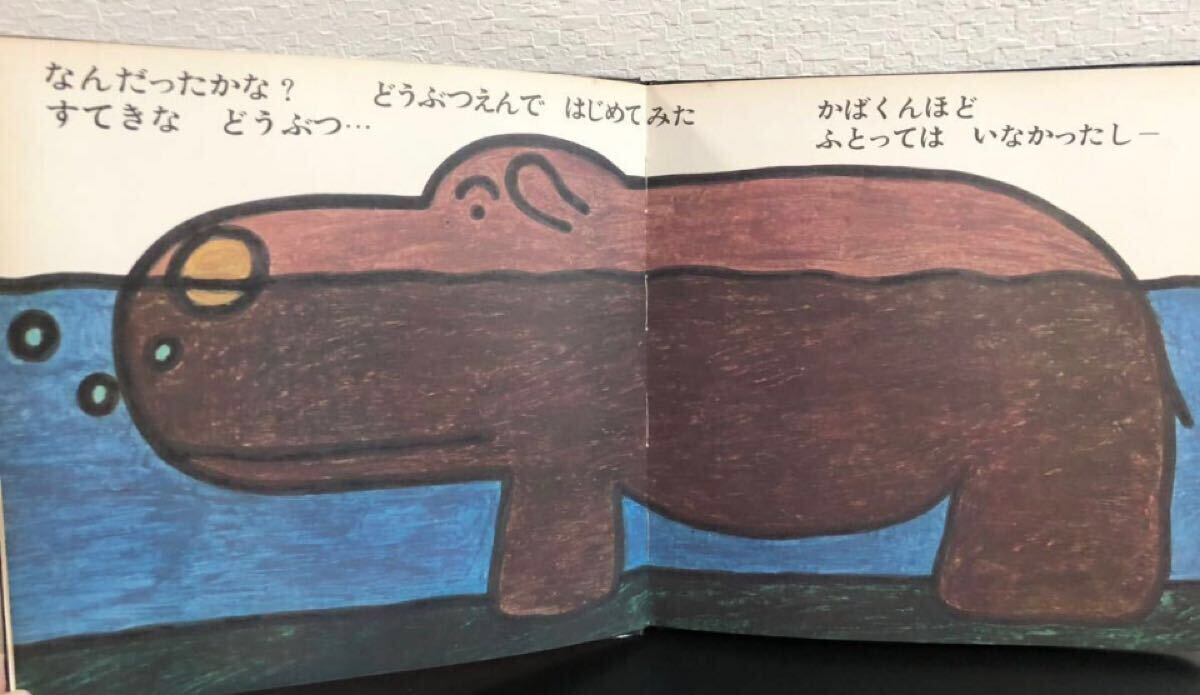 なんだったかな?
すてきな どうぶつ…
どうぶつえんで はじめてみた
かばくんほど
ふとっては いなかったし―